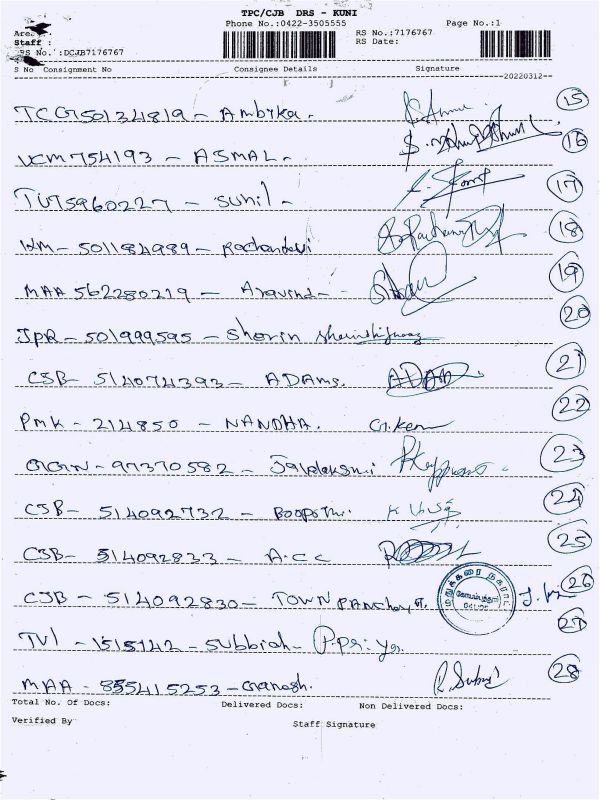 TPC/CJB DRS - KUNI
Phone No.:0422-3505555 Page No.:1
Area RS No.:7176767
Staff : RS Date:
RS No. :DCJB7176767
S No Consignment No Consignee Details Signature
--20220312--
15
TCG50134819 - Ambika.
16
VCM754193 - ASMAL -
17
TUT5960227 - Sunil -
18
KM - 501184989 -
19
MAA 562280219 - Aravind -
20
JPR - 501999595 - Sherin
21
CJB - 514074393 - ADAMS. ADAM
22
PMK - 214850 - NANDHA.
23
GGN - 97370582 -
24
CJB - 514092732 - Boopathi.
25
CJB - 514092833 - A.C.C
26
CJB - 514092830 - TOWN Panchayat.
27
TVI - 1515142 - Subbiah - P.priya.
28
MAA - 855415253 - Ganesh.
Total No. Of Docs: Delivered Docs: Non Delivered Docs:
Verified By Staff Signature